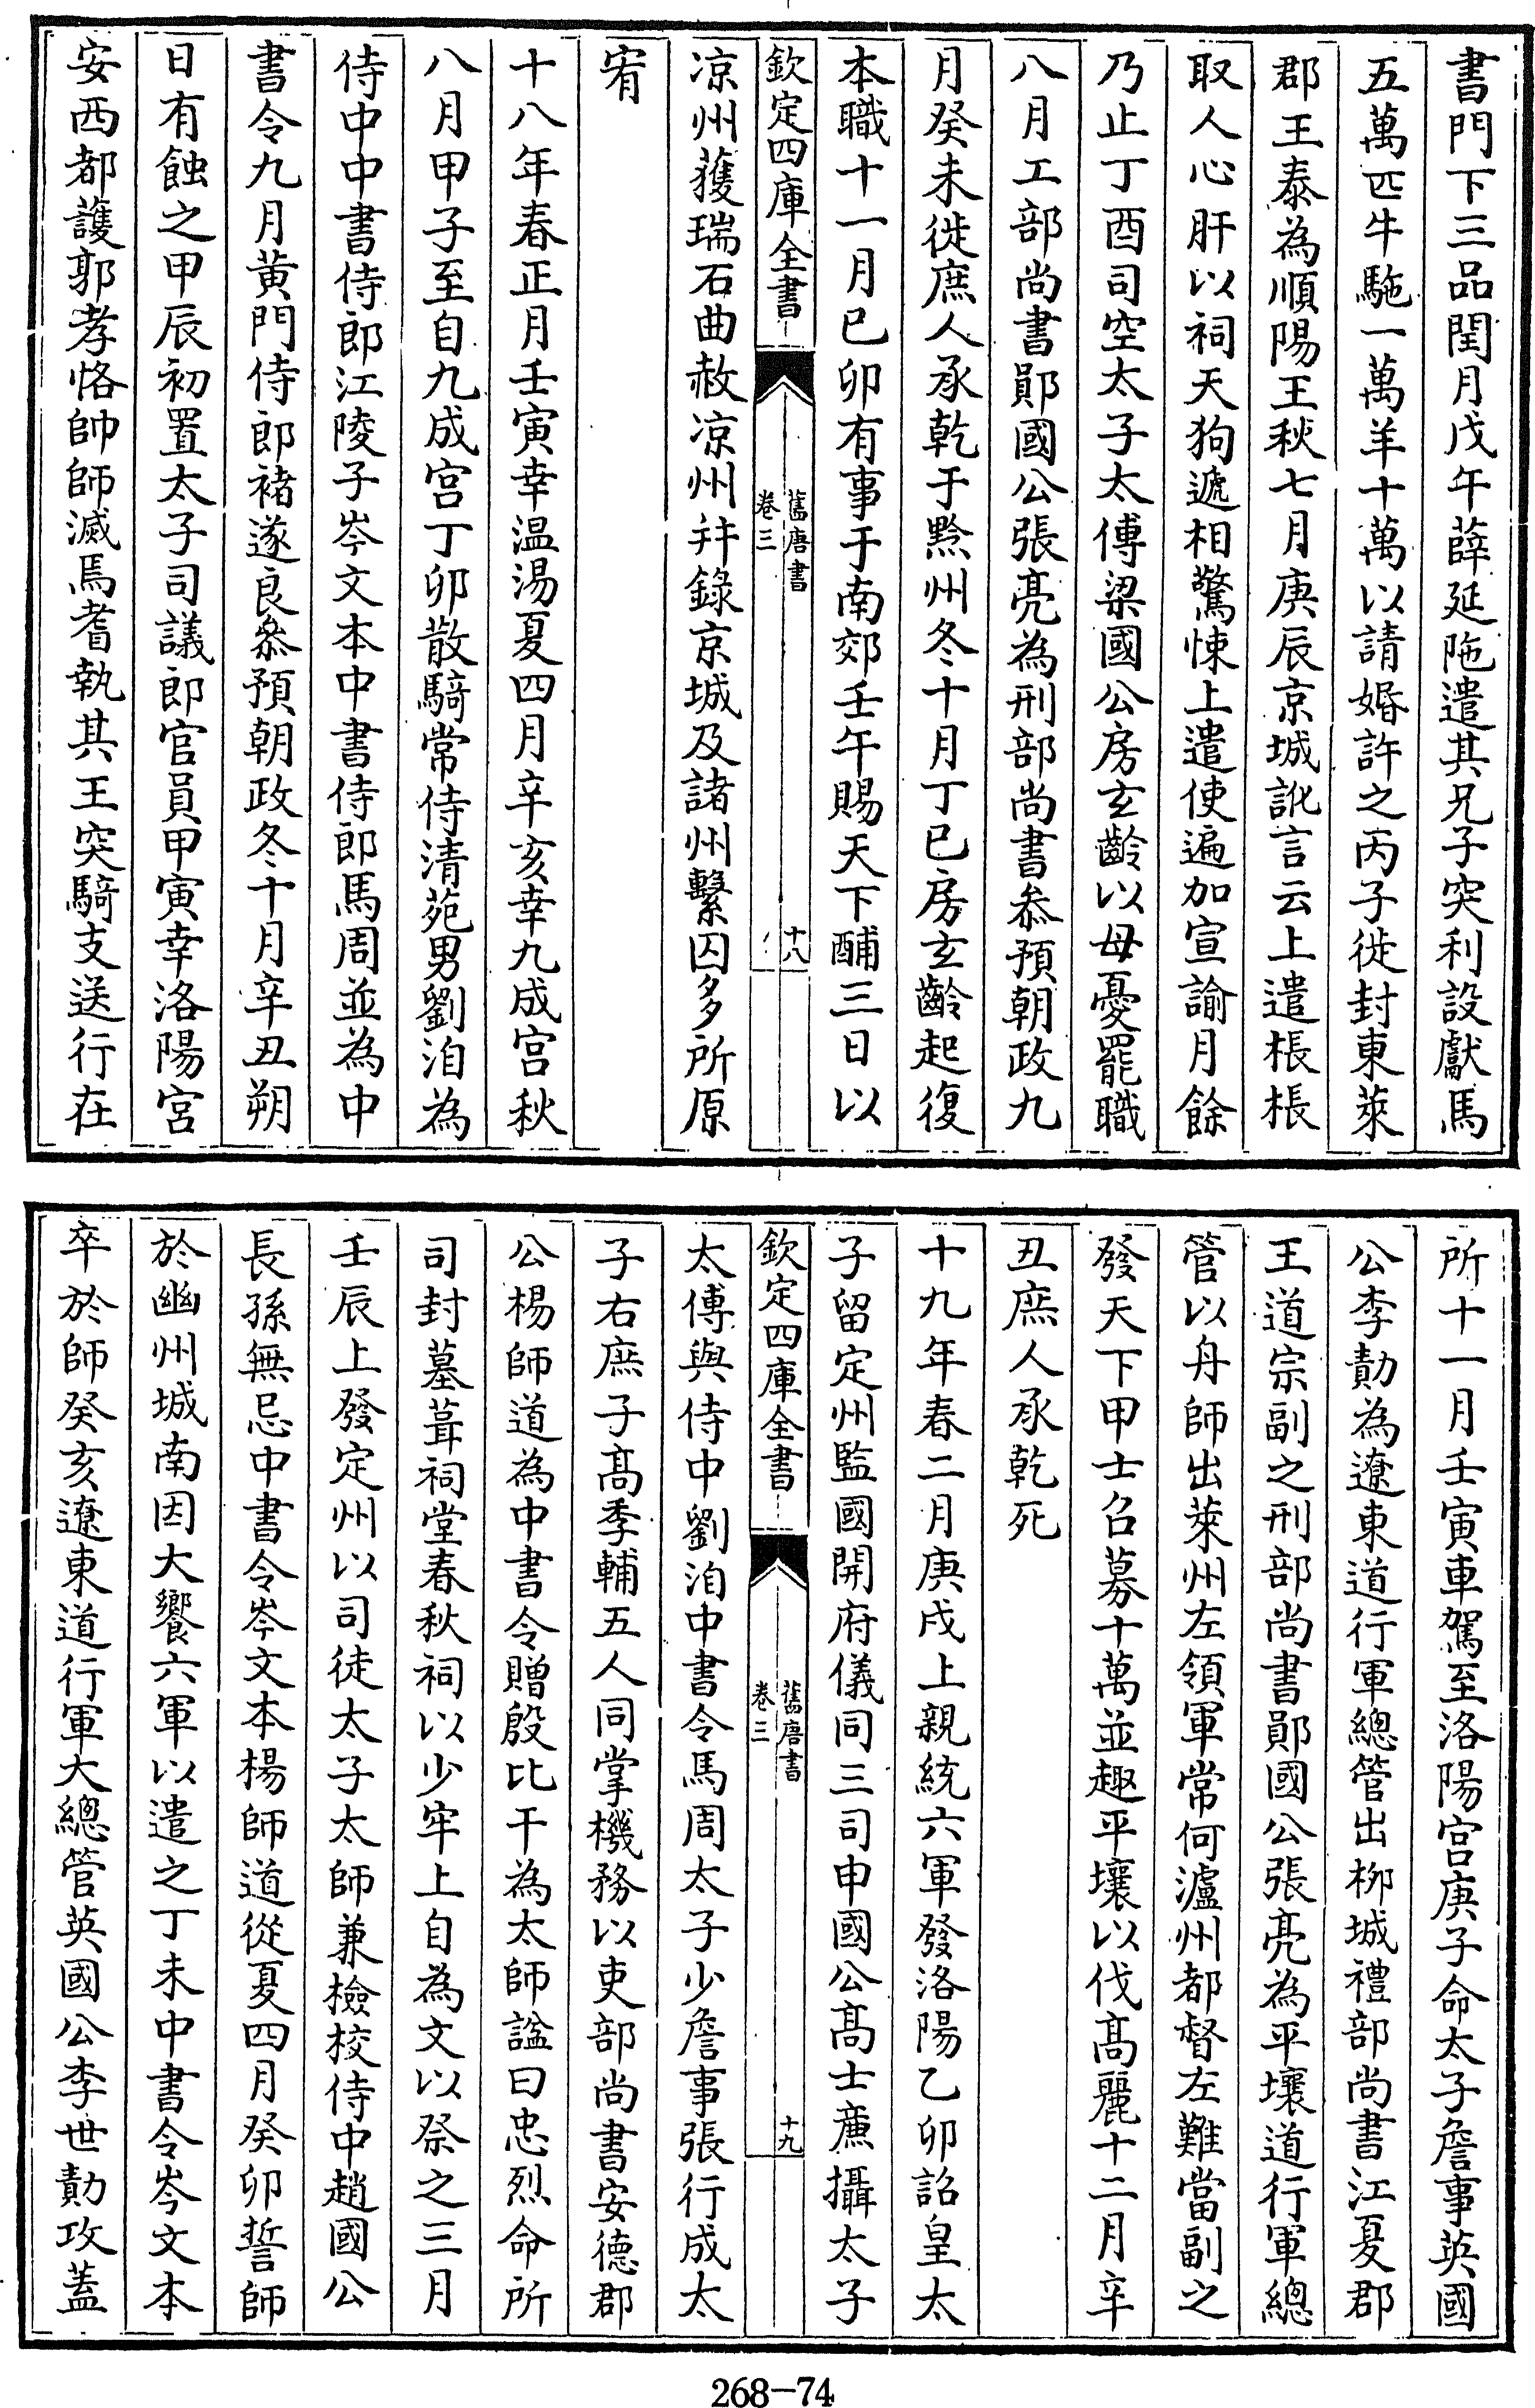 書門下三品閏月戊午薛延陁遣其兄子突利設獻馬
五萬匹牛駞一萬羊十萬以請婚許之丙子徙封東萊
郡王泰為順陽王秋七月庚辰京城訛言云上遣棖棖
取人心肝以祠天狗遞相驚悚上遣使遍加宣諭月餘
乃止丁酉司空太子太傅梁國公房玄齡以母憂罷職
八月工部尚書鄖國公張亮為刑部尚書叅預朝政九
月癸未徙庶人承乾于黔州冬十月丁巳房玄齡起復
本職十一月己卯有事于南郊壬午賜天下酺三日以
欽定四庫全書
舊唐書
卷三
十八
涼州獲瑞石曲赦涼州幷錄京城及諸州繫囚多所原
宥
十八年春正月壬寅幸温湯夏四月辛亥幸九成宫秋
八月甲子至自九成宫丁卯散騎常侍清苑男劉洎為
侍中中書侍郎江陵子岑文本中書侍郎馬周並為中
書令九月黃門侍郎褚遂良叅預朝政冬十月辛丑朔
日有蝕之甲辰初置太子司議郎官員甲寅幸洛陽宮
安西都護郭孝恪帥師滅焉耆執其王突騎支送行在
所十一月壬寅車駕至洛陽宫庚子命太子詹事英國
公李勣為遼東道行軍總管出栁城禮部尚書江夏郡
王道宗副之刑部尚書鄖國公張亮為平壤道行軍總
管以舟師出萊州左領軍常何瀘州都督左難當副之
發天下甲士召募十萬並趣平壤以伐髙麗十二月辛
丑庶人承乾死
十九年春二月庚戌上親統六軍發洛陽乙卯詔皇太
子留定州監國開府儀同三司申國公髙士亷攝太子
欽定四庫全書
舊唐書
卷三
十九
太傅與侍中劉洎中書令馬周太子少詹事張行成太
子右庶子髙季輔五人同掌機務以吏部尚書安德郡
公楊師道為中書令贈殷比干為太師諡曰忠烈命所
司封墓葺祠堂春秋祠以少牢上自為文以祭之三月
壬辰上發定州以司徒太子太師兼檢校侍中趙國公
長孫無忌中書令岑文本楊師道從夏四月癸卯誓師
於幽州城南因大饗六軍以遣之丁未中書令岑文本
卒於師癸亥遼東道行軍大總管英國公李世勣攻蓋
268-74